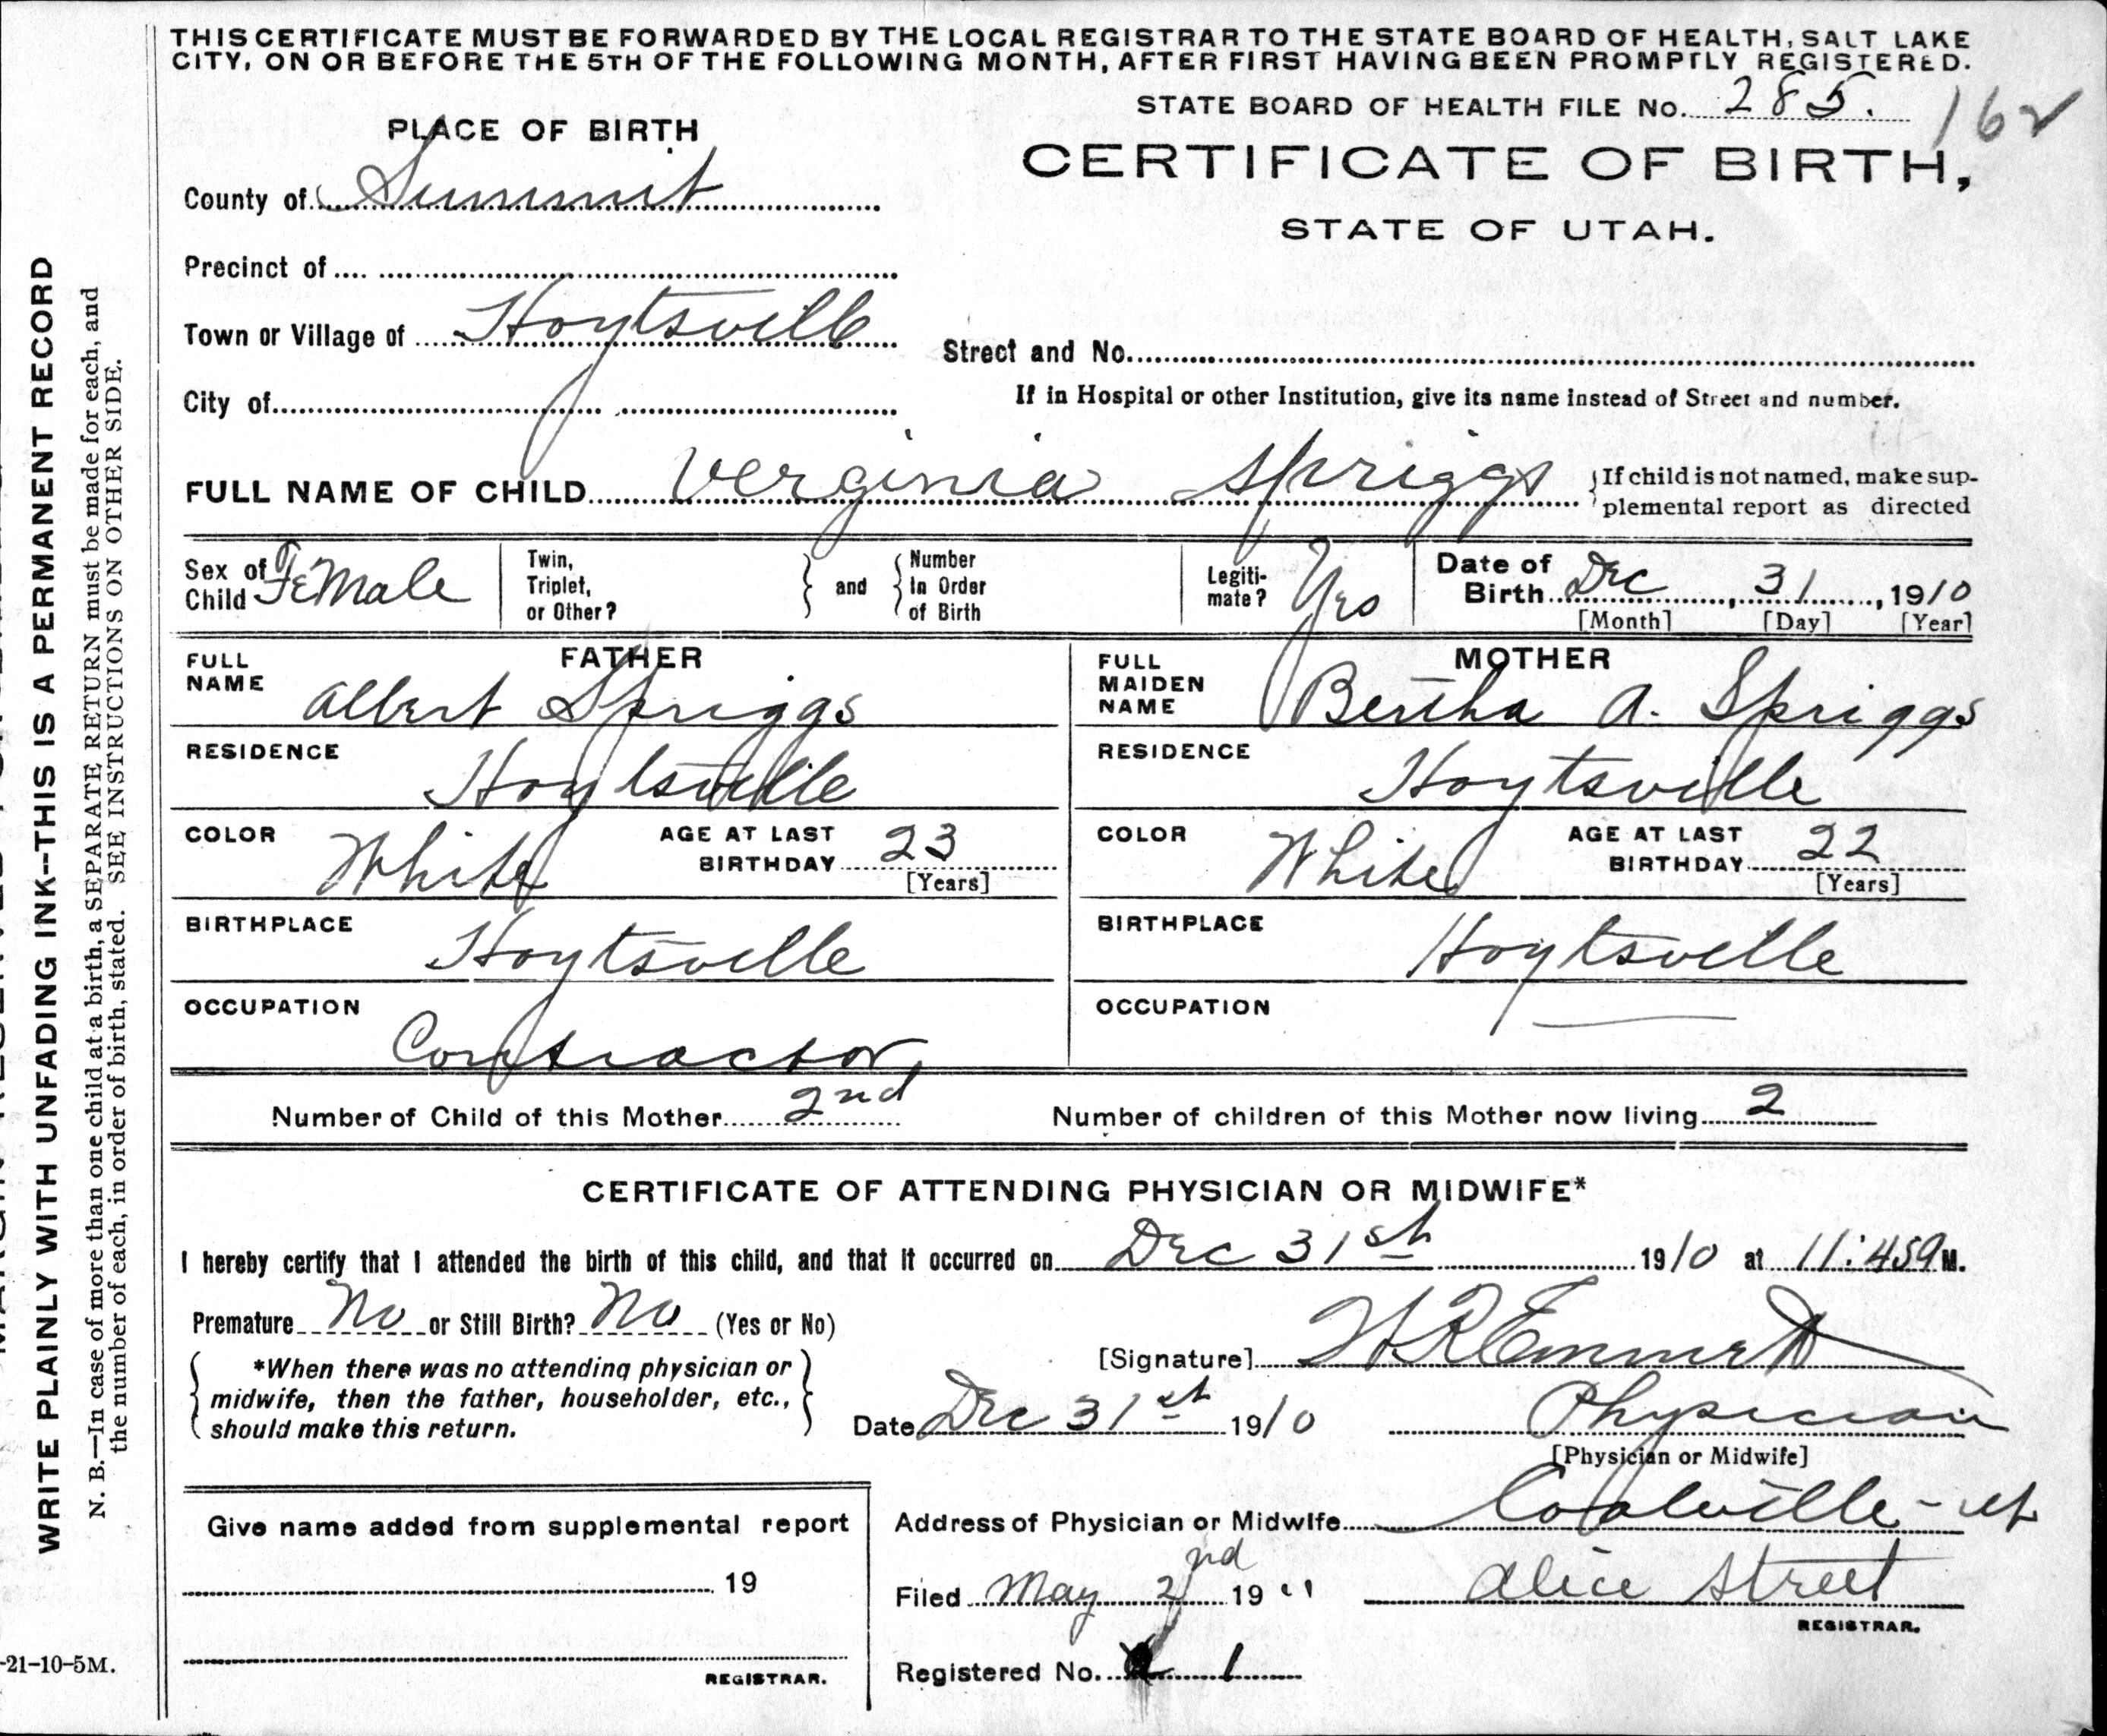 THIS CERTIFICATE MUST BE FORWARDED BY THE LOCAL REGISTRAR TO THE STATE BOARD OF HEALTH, SALT LAKE
CITY, ON OR BEFORE THE 5TH OF THE FOLLOWING MONTH, AFTER FIRST HAVING BEEN PROMPTLY REGISTERED.
STATE BOARD OF HEALTH FILE No. 285. 162
PLACE OF BIRTH
CERTIFICATE OF BIRTH,
STATE OF UTAH.
County of Summit
Precinct of
Town or Village of Hoytsville
Street and No.
City of
If in Hospital or other Institution, give its name instead of Street and number.
FULL NAME OF CHILD Verginia Spriggs
{If child is not named, make sup-
plemental report as directed
Sex of Child FeMale
Twin, Triplet, or Other? } and { Number In Order of Birth
Legiti-mate? Yes
Date of Birth Dec, 31, 1910
[Month] [Day] [Year]
FATHER
FULL NAME Albert Spriggs
RESIDENCE Hoytsville
COLOR White AGE AT LAST BIRTHDAY 23
[Years]
BIRTHPLACE Hoytsville
OCCUPATION Contractor
MOTHER
FULL MAIDEN NAME Bertha A. Spriggs
RESIDENCE Hoytsville
COLOR White AGE AT LAST BIRTHDAY 22
[Years]
BIRTHPLACE Hoytsville
OCCUPATION
Number of Child of this Mother 2nd Number of children of this Mother now living 2
CERTIFICATE OF ATTENDING PHYSICIAN OR MIDWIFE*
I hereby certify that I attended the birth of this child, and that it occurred on Dec 31st 1910 at 11:45 a M.
Premature No or Still Birth? No (Yes or No)
{*When there was no attending physician or
midwife, then the father, householder, etc.,
should make this return.}
[Signature] Emmett
Date Dec 31st 1910 Physician
[Physician or Midwife]
Address of Physician or Midwife Coalville - Ut
Give name added from supplemental report
19
REGISTRAR.
Filed May 2nd 19 11 Alice Street
REGISTRAR.
Registered No. 1
WRITE PLAINLY WITH UNFADING INK--THIS IS A PERMANENT RECORD
N. B.—In case of more than one child at a birth, a SEPARATE RETURN must be made for each, and
the number of each, in order of birth, stated. SEE INSTRUCTIONS ON OTHER SIDE.
-21-10-5M.